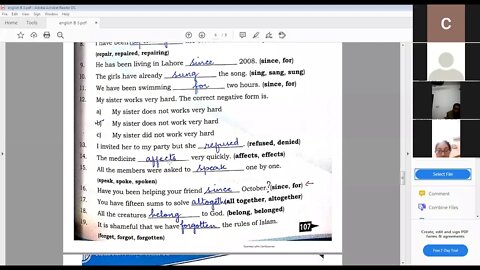 english 8 3.pdf - Adobe Acrobat Reader DC
Home Tools
english 8 3.pdf
I have been
(repair, repaired, repairing)
9. He has been living in Lahore since 2008. (since, for)
10. The girls have already sung the song. (sing, sang, sung)
11. We have been swimming for two hours. (since, for)
12. My sister works very hard. The correct negative form is.
a) My sister does not works very hard
b) My sister does not work very hard
c) My sister did not work very hard
13. I invited her to my party but she refused. (refused, denied)
14. The medicine affects very quickly. (affects, effects)
15. All the members were asked to speak one by one.
(speak, spoke, spoken)
16. Have you been helping your friend since October? (since, for)
17. You have fifteen sums to solve altogether (all together, altogether)
18. All the creatures belong to God. (belong, belonged)
19. It is shameful that we have forgotten the rules of Islam.
(forget, forgot, forgotten)
107
C
Select File
Comment
Combine Files
Create, edit and sign PDF
forms & agreements
Free 7-Day Trial